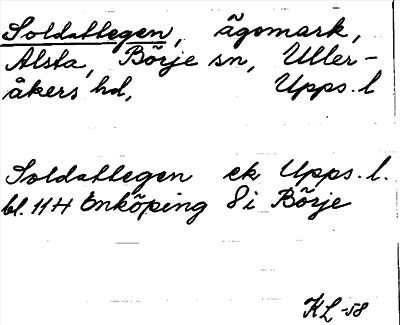 Soldatlegen, ägomark,
Alsta, Börje sn, Uller-
åkers hd, Upps. l
Soldatlegen ek Upps. l.
bl. 11H Enköping 8i Börje
KL-58